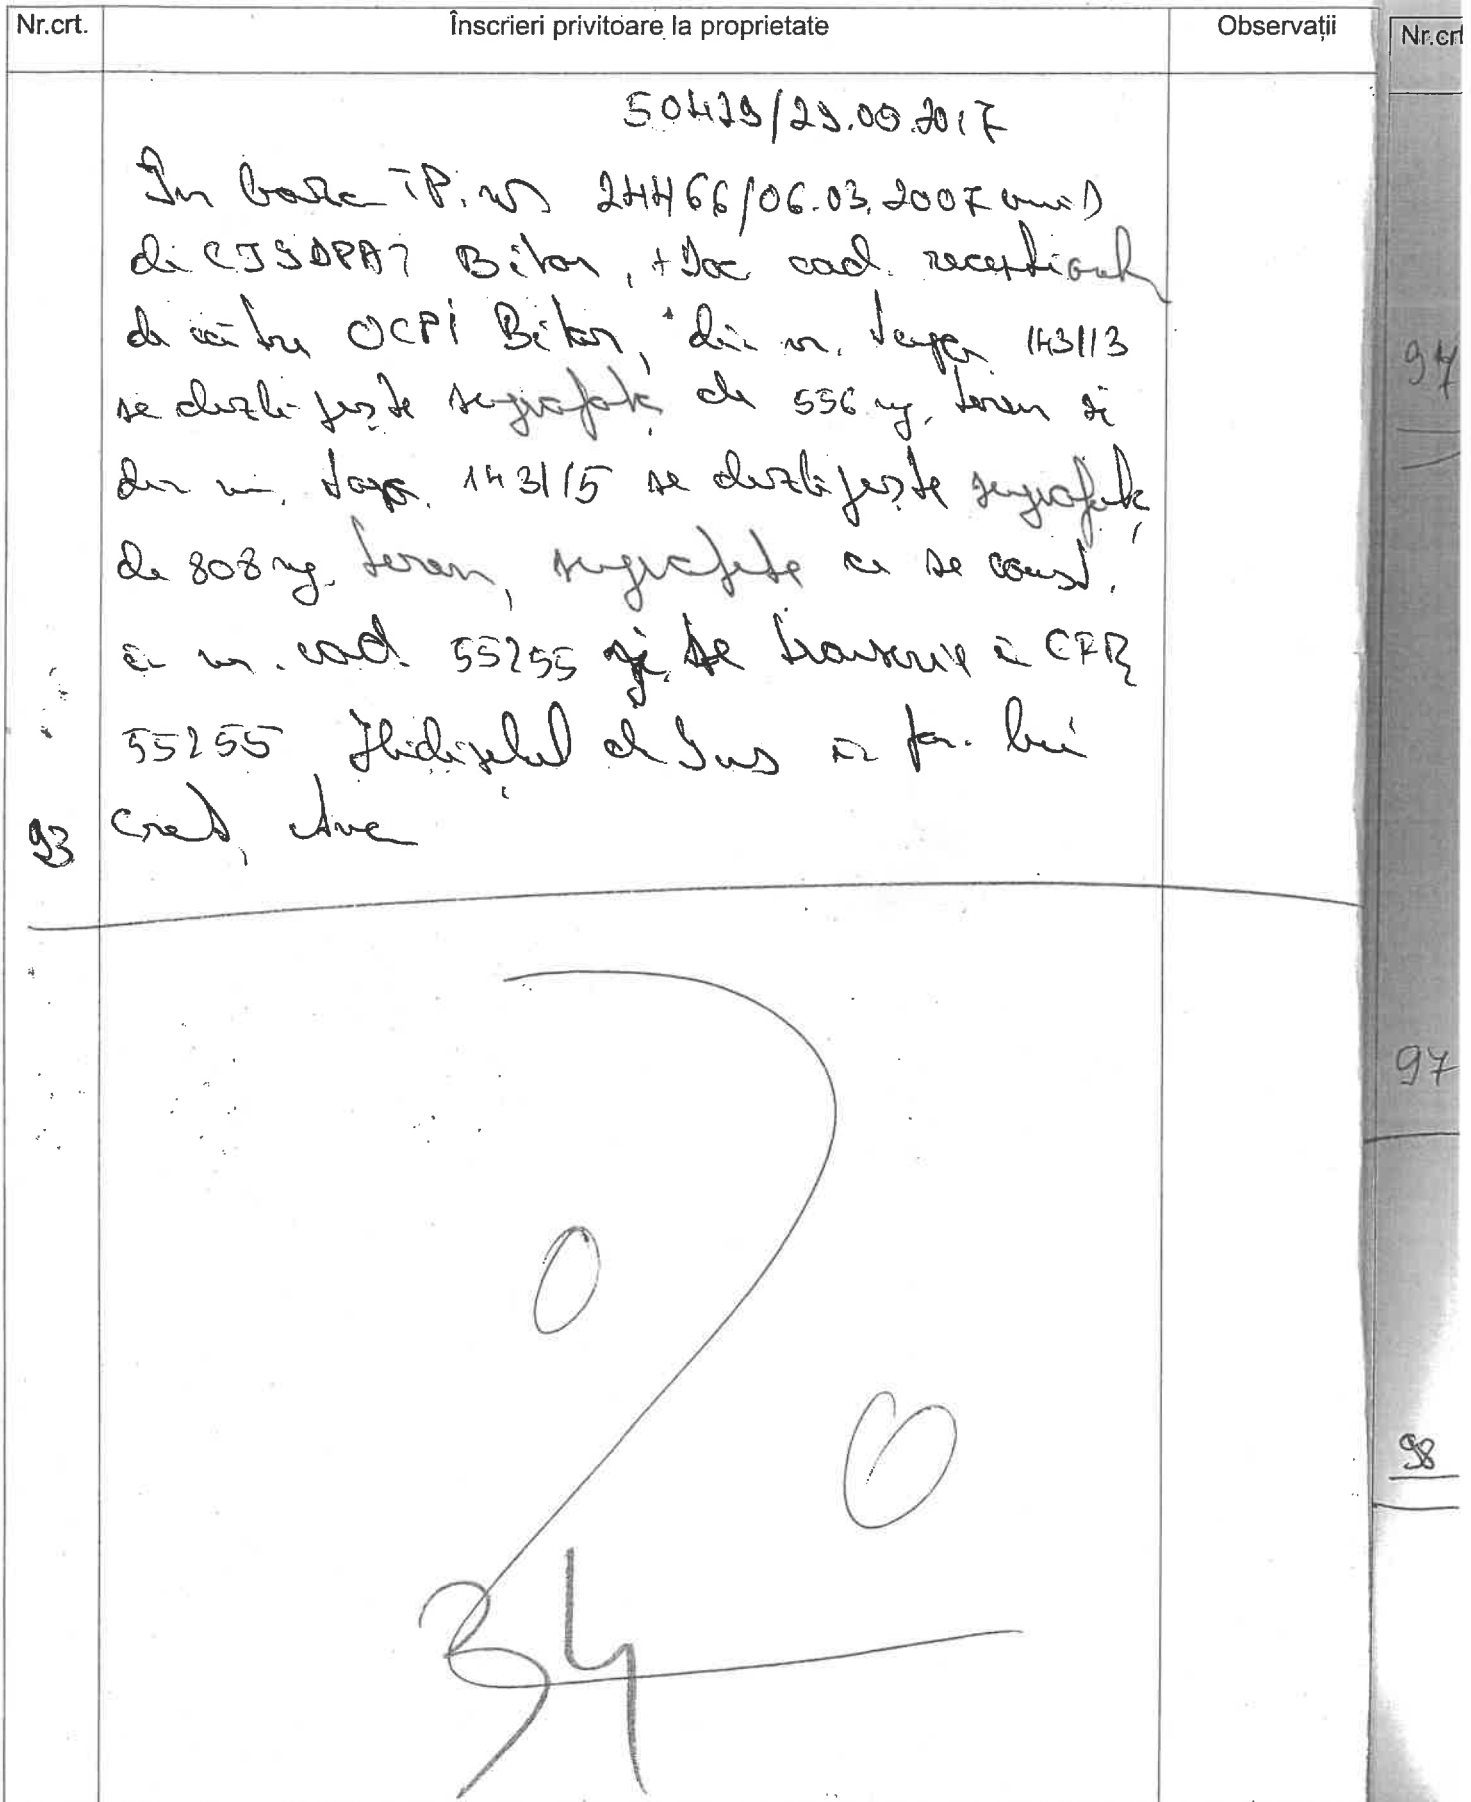 Nr.crt. Înscrieri privitoare la proprietate Observații
50429/29.09.2017
În baza TP. nr 24466/06.03.2007 emis
de CJSDPAT Bihor, + Doc cad. recepționată
de către OCPI Bihor, din nr. topo. 143/13
se dezlipește suprafața de 556 mp. teren și
din nr. topo. 143/15 se dezlipește suprafața
de 808 mp. teren, suprafețe ce se const.
în nr. cad. 55255 și se transcrie în CF
55255 Hidișelul de Sus în fav. lui
93 Creț Ana
34
Nr.crt
94
97
98